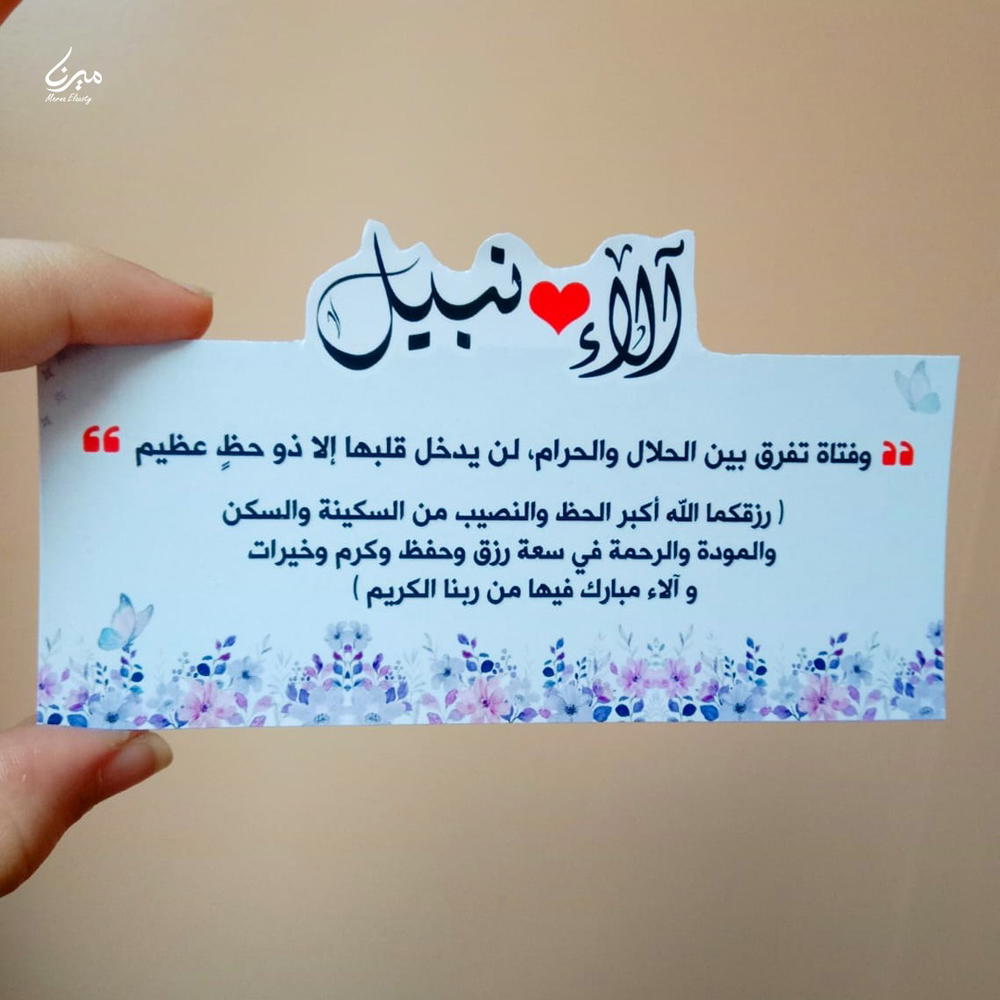 ميرنا
Merna Elsasty
آلاء ❤ نبيل
"وفتاة تفرق بين الحلال والحرام، لن يدخل قلبها إلا ذو حظٍ عظيم"
( رزقكما الله أكبر الحظ والنصيب من السكينة والسكن
والمودة والرحمة في سعة رزق وحفظ وكرم وخيرات
و آلاء مبارك فيها من ربنا الكريم )